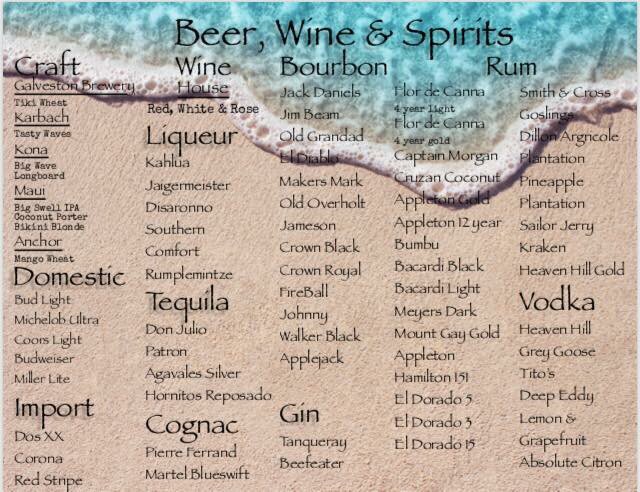 Beer, Wine & Spirits
Craft
Galveston Brewery
Tiki Wheat
Karbach
Tasty Waves
Kona
Big Wave
Longboard
Maui
Big Swell IPA
Coconut Porter
Bikini Blonde
Anchor
Mango Wheat
Domestic
Bud Light
Michelob Ultra
Coors Light
Budweiser
Miller Lite
Import
Dos XX
Corona
Red Stripe
Wine
House
Red, White & Rose
Liqueur
Kahlua
Jaigermeister
Disaronno
Southern
Comfort
Rumplemintze
Tequila
Don Julio
Patron
Agavales Silver
Hornitos Reposado
Cognac
Pierre Ferrand
Martel Blueswift
Bourbon
Jack Daniels
Jim Beam
Old Grandad
El Diablo
Makers Mark
Old Overholt
Jameson
Crown Black
Crown Royal
FireBall
Johnny
Walker Black
Applejack
Gin
Tanqueray
Beefeater
Rum
Flor de Canna
4 year light
Flor de Canna
4 year gold
Captain Morgan
Cruzan Coconut
Appleton Gold
Appleton 12 year
Bumbu
Bacardi Black
Bacardi Light
Meyers Dark
Mount Gay Gold
Appleton
Hamilton 151
El Dorado 5
El Dorado 3
El Dorado 15
Smith & Cross
Goslings
Dillon Argricole
Plantation
Pineapple
Plantation
Sailor Jerry
Kraken
Heaven Hill Gold
Vodka
Heaven Hill
Grey Goose
Tito's
Deep Eddy
Lemon &
Grapefruit
Absolute Citron